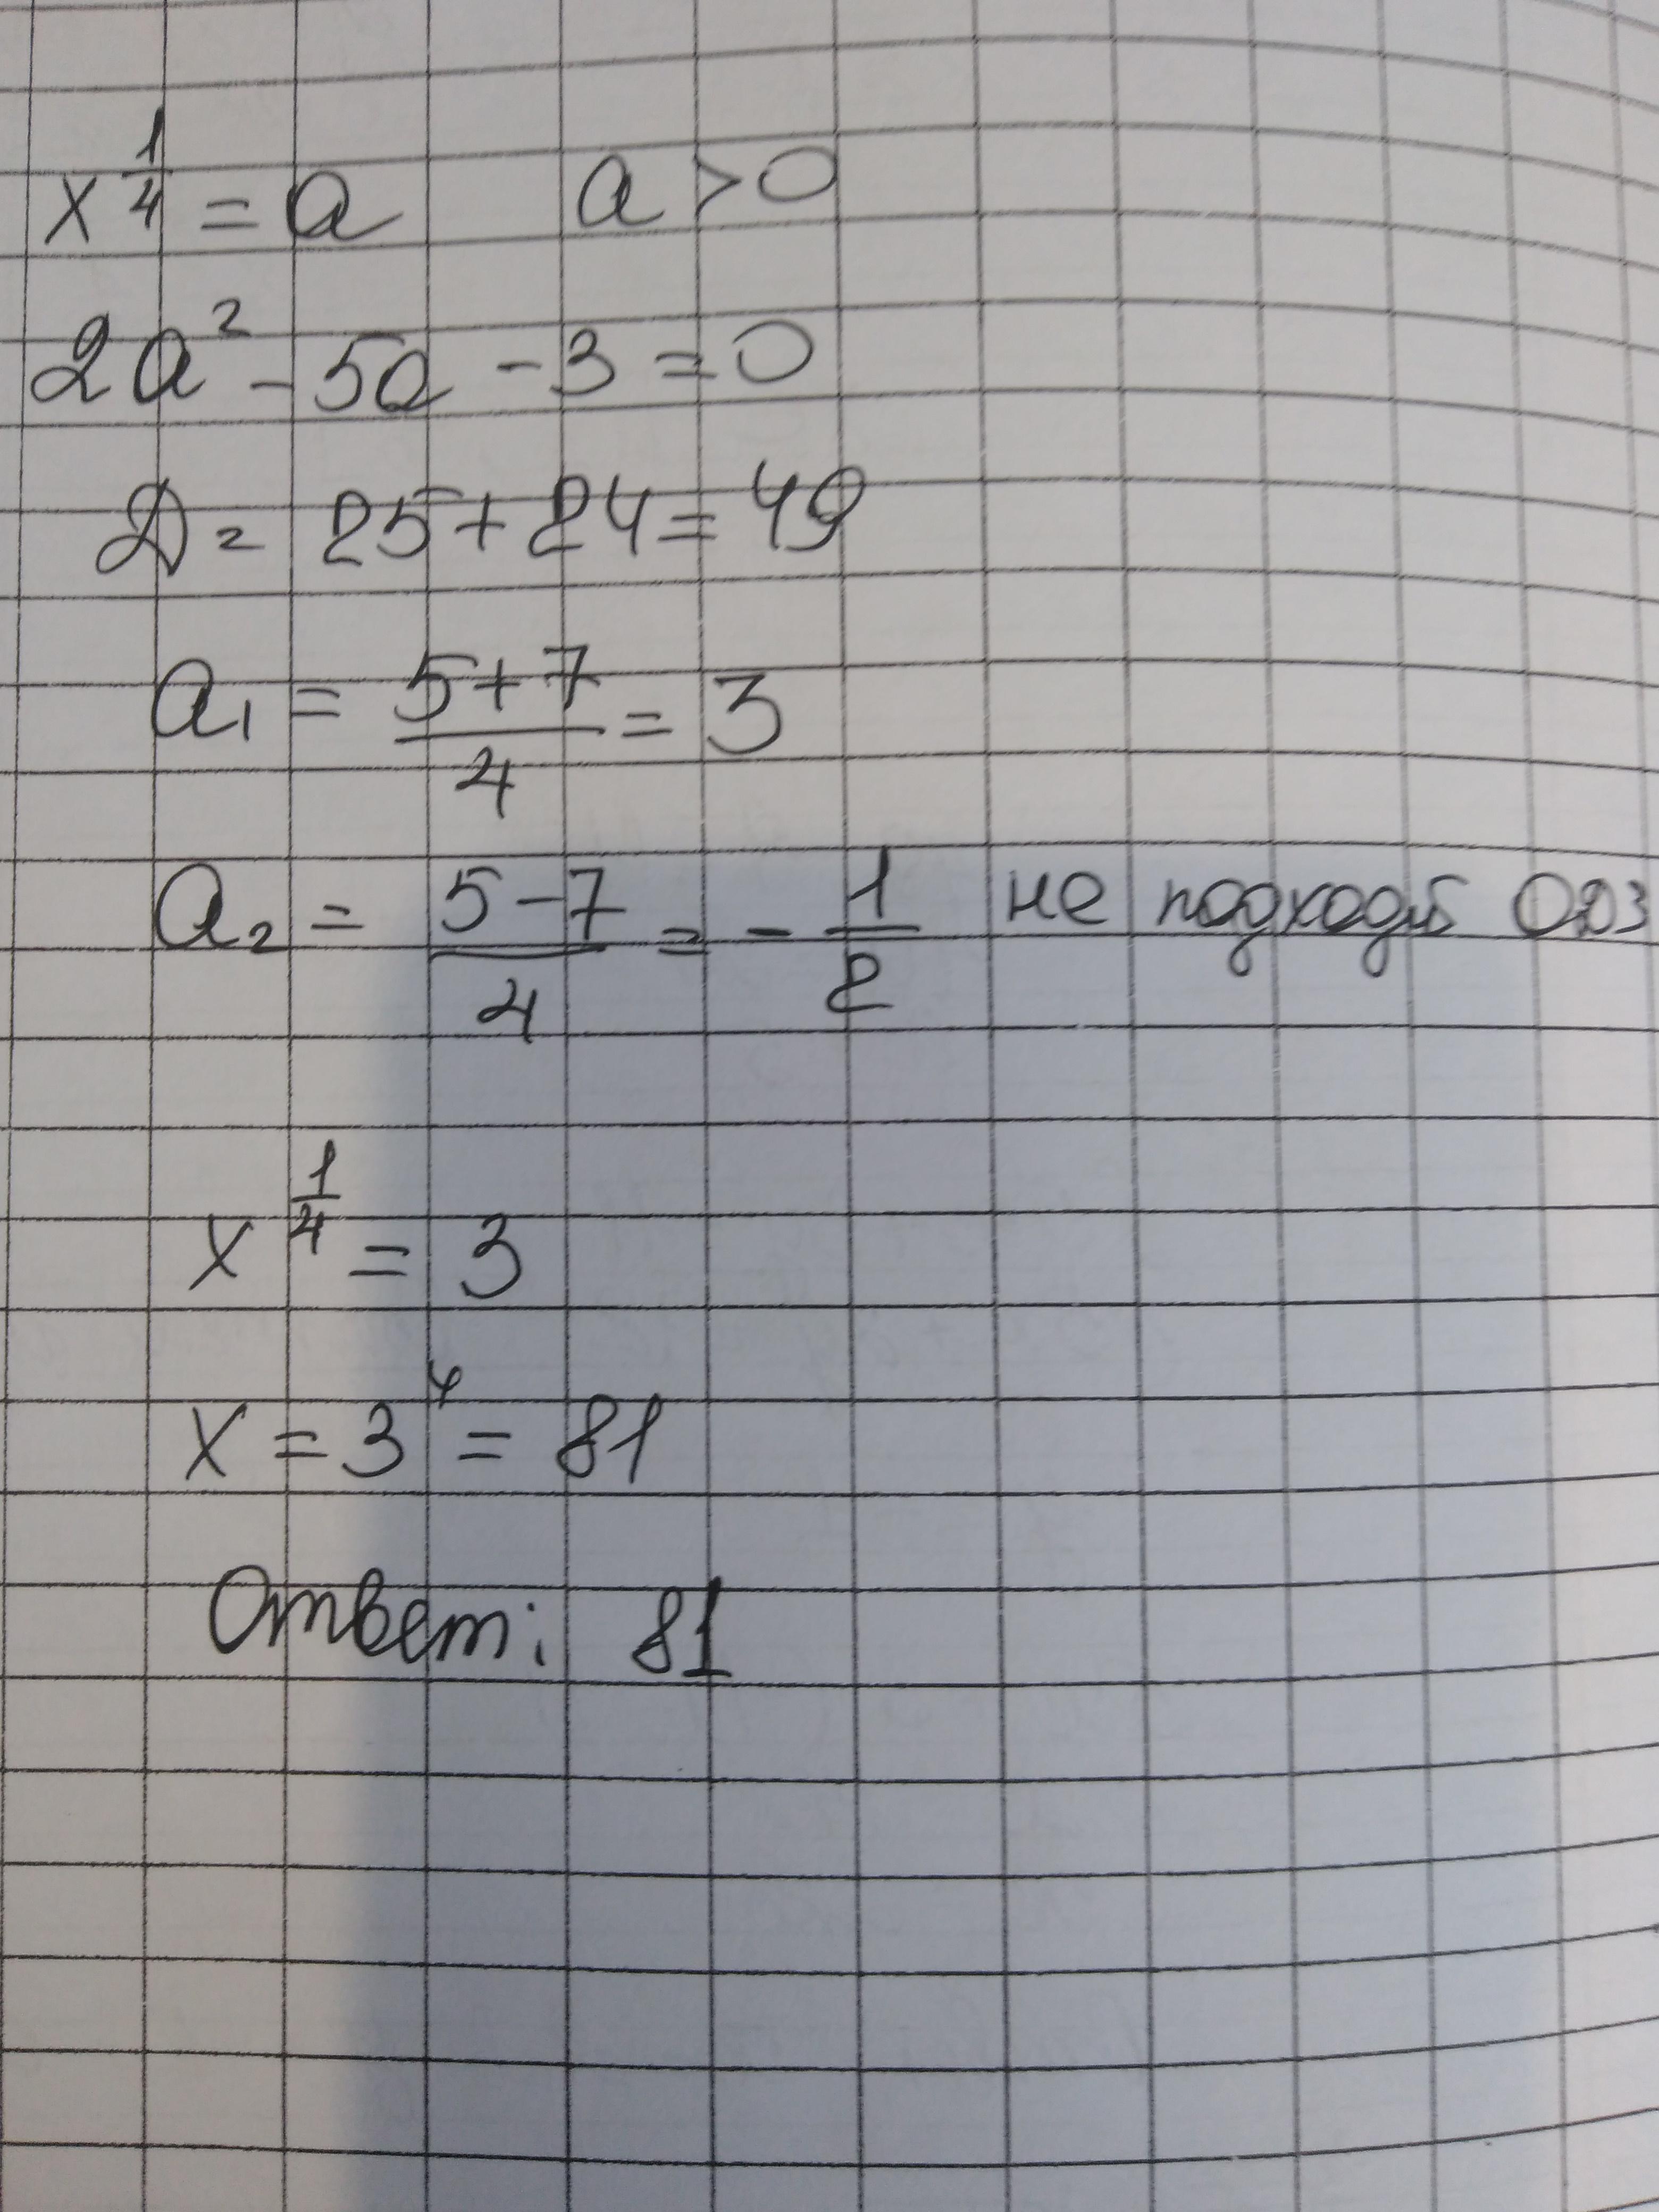 x^{\frac{1}{4}} = a   a > 0
2a² - 5a - 3 = 0
D = 25 + 24 = 49
a₁ = \frac{5+7}{4} = 3
a₂ = \frac{5-7}{4} = -\frac{1}{2} не подходит ОДЗ
x^{\frac{1}{4}} = 3
x = 3⁴ = 81
Ответ: 81